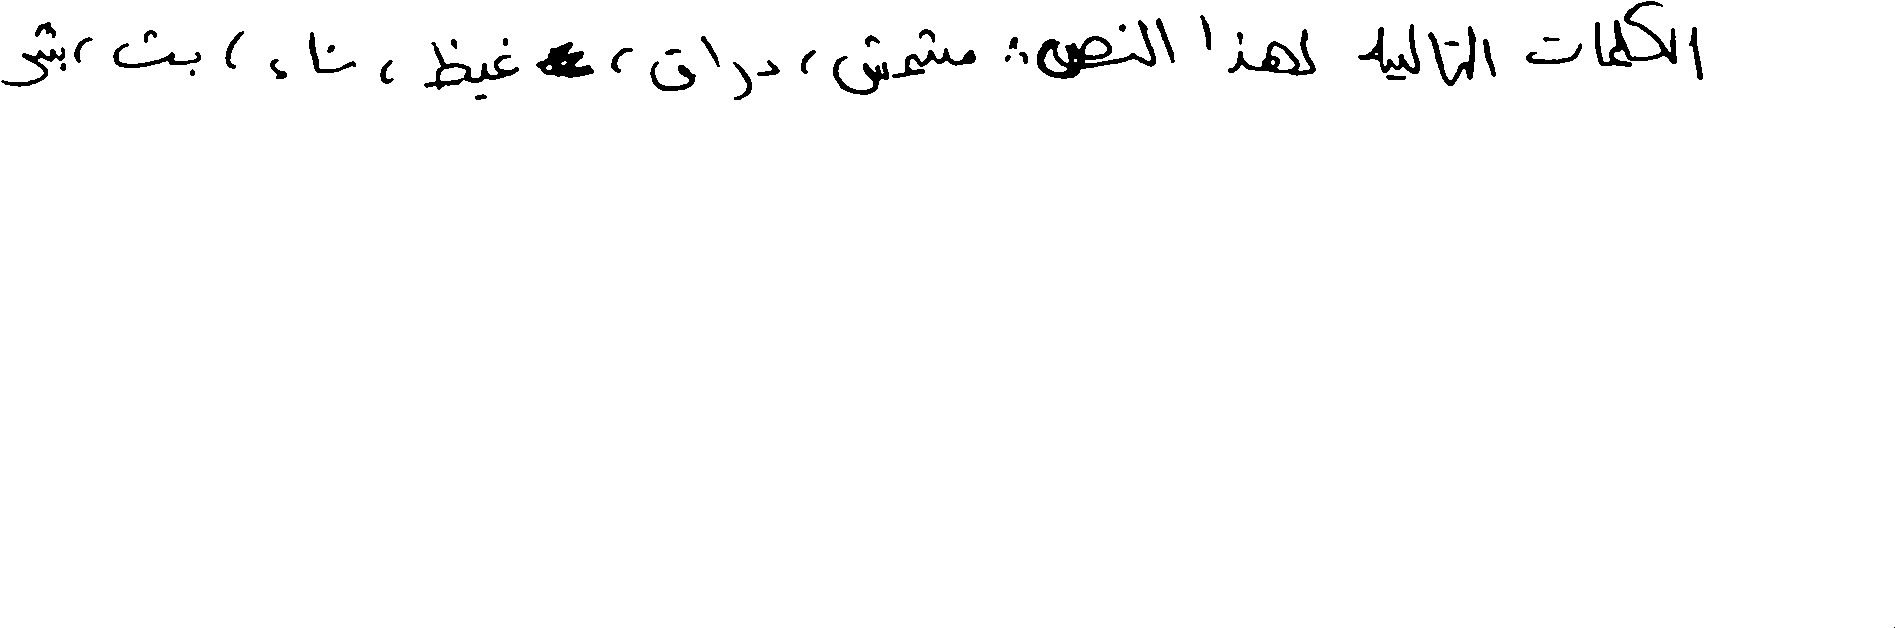 الكلمات التاليه لهذا النص: مشمش، دراق، غيظ، شاء، بت، بش